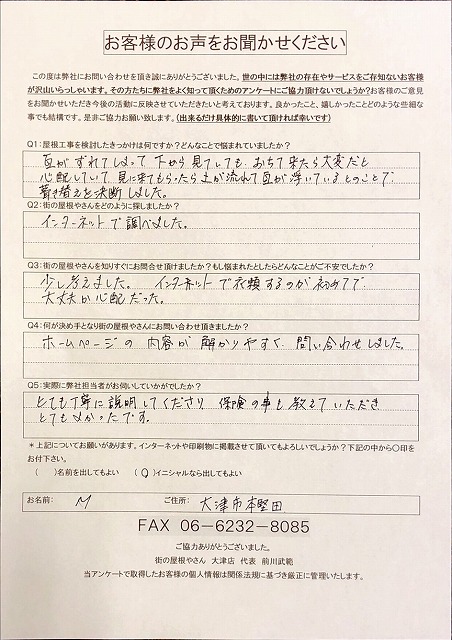 お客様のお声をお聞かせください
この度は弊社にお問い合わせを頂き誠にありがとうございました。世の中には弊社の存在やサービスをご存知ないお客様
が沢山いらっしゃいます。その方たちに弊社をよく知って頂くためのアンケートにご協力頂けないでしょうか?お客様のご意見
をお聞かせいただき今後の活動に反映させていただきたいと考えております。良かったこと、嬉しかったことどのような些細な
事でも結構です。是非ご協力お願い致します。(出来るだけ具体的に書いて頂ければ幸いです)
Q1:屋根工事を検討したきっかけは何ですか?どんなことで悩まれていましたか?
瓦がずれてしまって下から見てしても、おちて来たら大変だと
心配していて、見に来てもらったら土が流れて瓦が浮いているとのことで
葺き替えを決断しました。
Q2:街の屋根やさんをどのように探しましたか?
インターネットで調べました。
Q3:街の屋根やさんを知りすぐにお問合せ頂けましたか?もし悩まれたとしたらどんなことがご不安でしたか?
少し考えました。 インターネットで依頼するのが初めてで、
大丈夫か心配だった。
Q4:何が決め手となり街の屋根やさんにお問い合わせ頂きましたか?
ホームページの内容が解かりやすく、問い合わせしました。
Q5:実際に弊社担当者がお伺いしていかがでしたか?
とても丁寧に説明してくださり、保険の事も教えていただき
とてもよかったです。
*上記についてお願いがあります。インターネットや印刷物に掲載させて頂いてもよろしいでしょうか?下記の中から〇印を
お付下さい。
( )名前を出してもよい (〇)イニシャルなら出してもよい
お名前: M ご住所: 大津市本堅田
FAX 06-6232-8085
ご協力ありがとうございました。
街の屋根やさん 大津店 代表 前川武範
当アンケートで取得したお客様の個人情報は関係法規に基づき厳正に管理いたします。